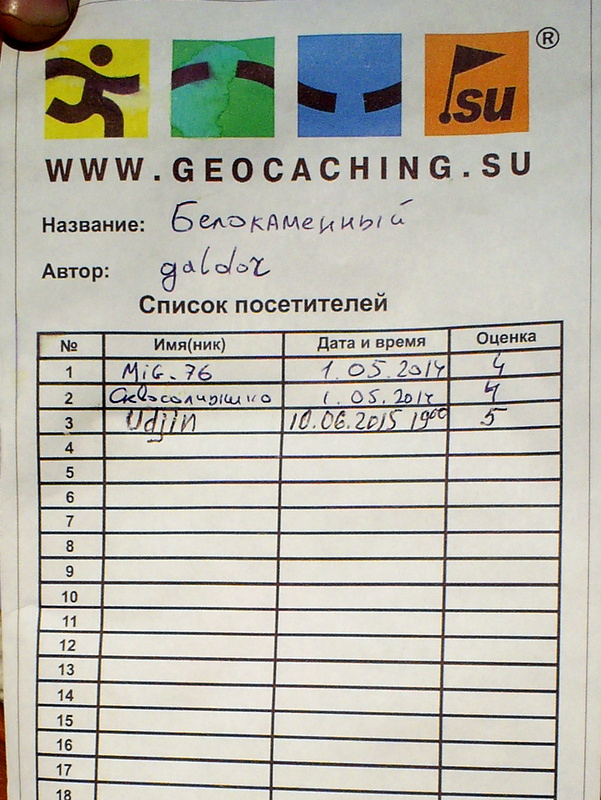 ®
.su
WWW.GEOCACHING.SU
Название: Белокаменный
Автор: galdor
Список посетителей
№ Имя(ник) Дата и время Оценка
1 MiG-76 1.05.2014 4
2 1.05.2014 4
3 Udjin 10.06.2015 19⁰⁰ 5
4
5
6
7
8
9
10
11
12
13
14
15
16
17
18